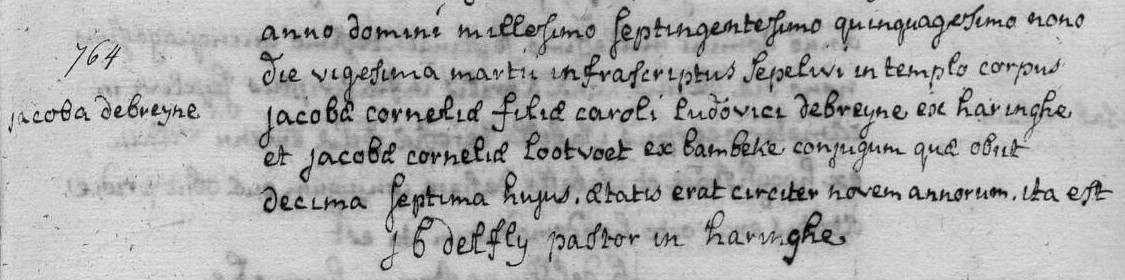 764
jacoba debreyne
anno domini millesimo septingentesimo quinquagesimo nono
die vigesima martii infrascriptus sepelivi in templo corpus
jacobæ corneliæ filiæ caroli ludovici debreyne ex haringhe
et jacobæ corneliæ Lootvoet ex bambeke conjugum quæ obiit
decima septima hujus. ætatis erat circiter novem annorum. ita est
j b delfly pastor in haringhe